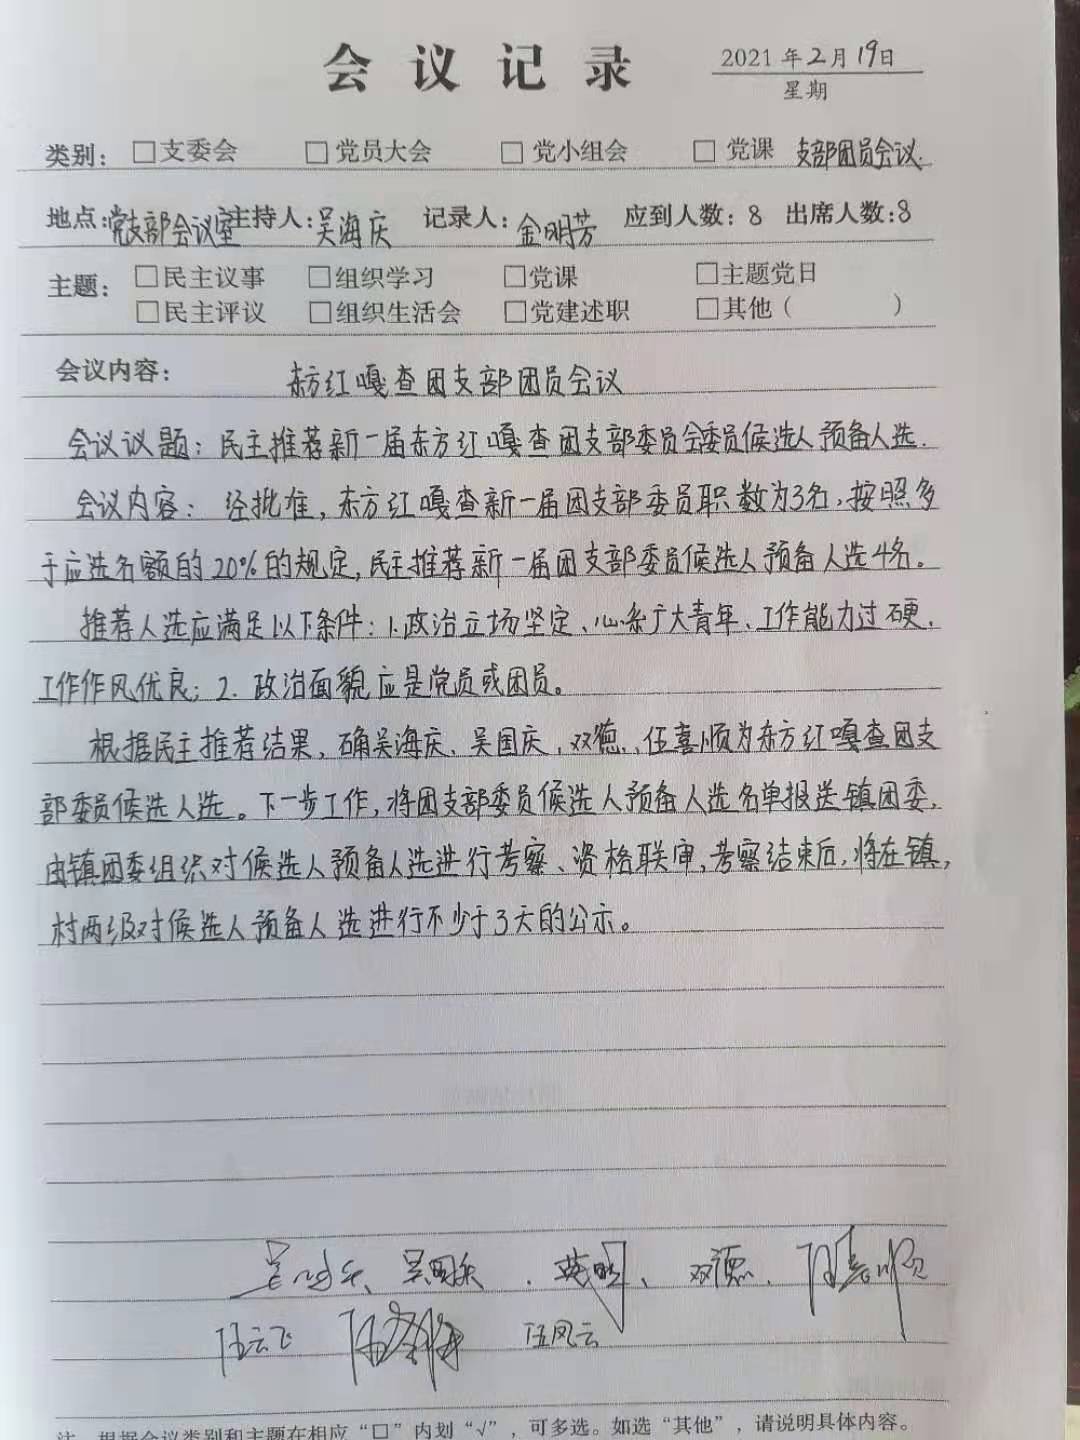 会议记录
2021年2月19日
星期
类别：□支委会 □党员大会 □党小组会 □党课 支部团员会议
地点：党支部会议室 主持人：吴海庆 记录人：金明芳 应到人数：8 出席人数：8
主题：□民主议事 □组织学习 □党课 □主题党日
□民主评议 □组织生活会 □党建述职 □其他（ ）
会议内容： 东方红嘎查团支部团员会议
会议议题：民主推荐新一届东方红嘎查团支部委员会委员候选人预备人选.
会议内容：经批准，东方红嘎查新一届团支部委员职数为3名，按照多
于应选名额的20%的规定，民主推荐新一届团支部委员候选人预备人选4名。
推荐人选应满足以下条件：1.政治立场坚定、心系广大青年、工作能力过硬，
工作作风优良；2.政治面貌应是党员或团员。
根据民主推荐结果，确吴海庆、吴国庆、双德、伍喜顺为东方红嘎查团支
部委员候选人选。下一步工作，将团支部委员候选人预备人选名单报送镇团委，
由镇团委组织对候选人预备人选进行考察、资格联审，考察结束后，将在镇，
村两级对候选人预备人选进行不少于3天的公示。
吴海庆、吴国庆、双德、伍喜顺
伍云飞 伍凤云
注：根据会议类别和主题在相应“□”内划“√”，可多选。如选“其他”，请说明具体内容。